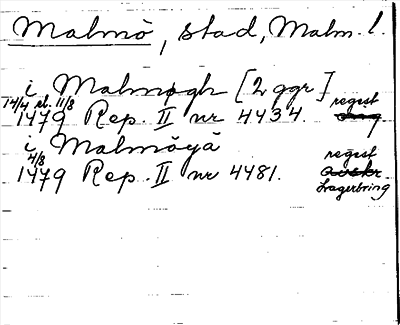 Malmö, stad, Malm. l.
i Malmøgh [2 ggr]
14/4 rl. 11/8 regist
1479 Rep. II nr 4434.
i Malmöyå
4/8 regist
1479 Rep. II nr 4481. avskr.
Lagerbring